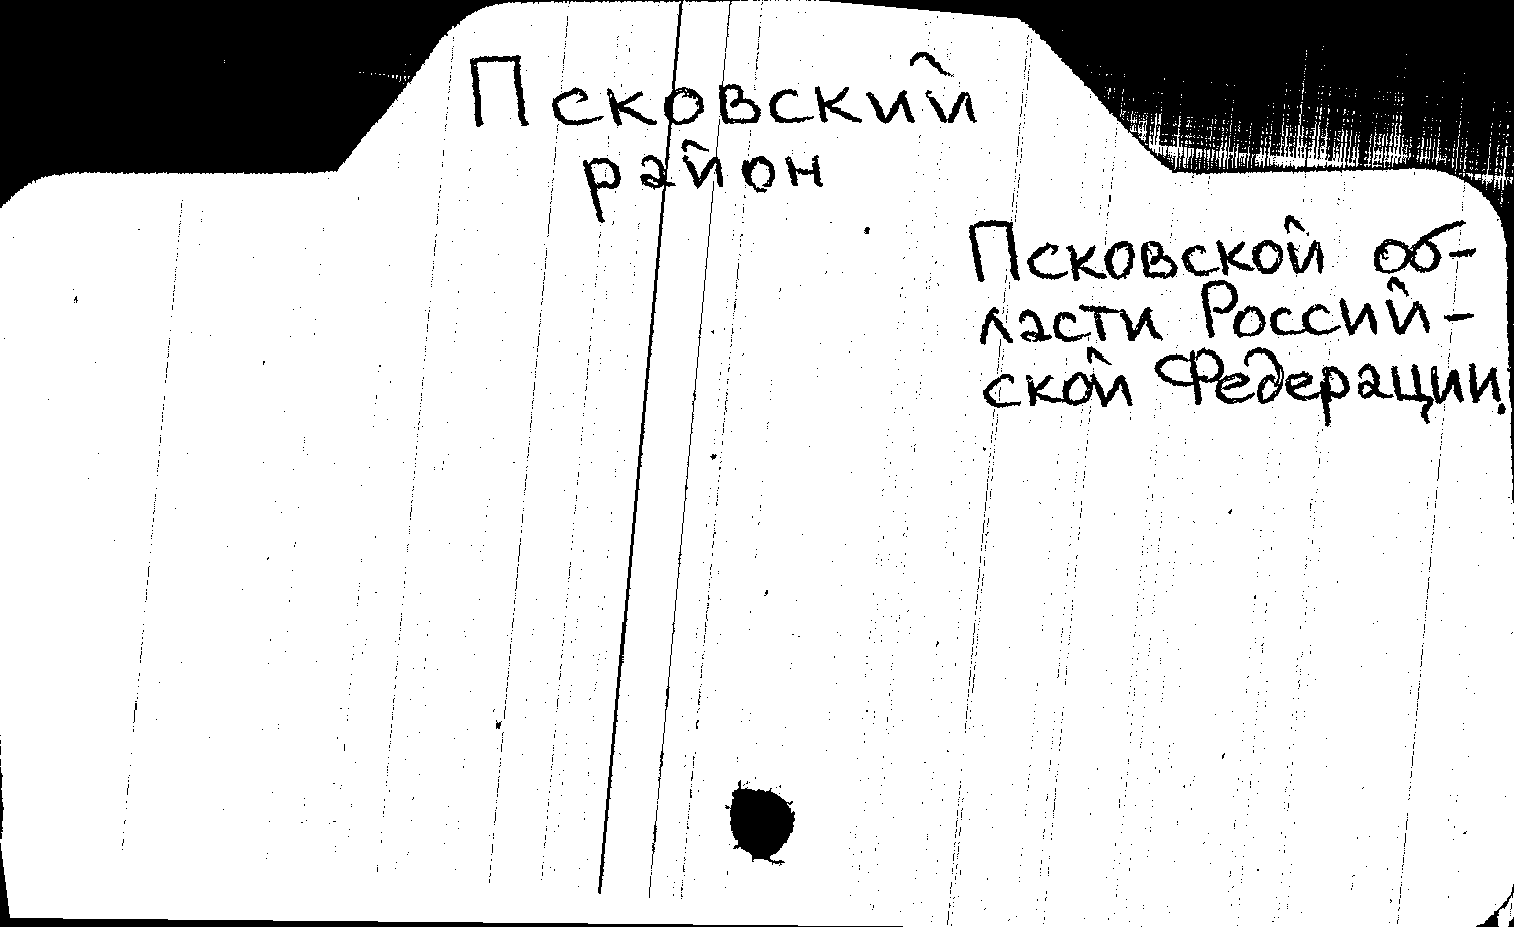 Псковский
район
Псковской об-
ласти Россий-
ской Федерации.